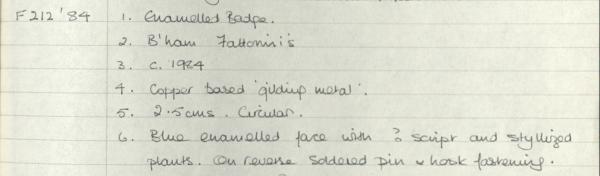 F212 '84 1. Enamelled Badge.
2. B'ham Fattorini's
3. c. 1984
4. Copper based 'gilding metal'.
5. 2.5cms. Circular.
6. Blue enamelled face with ? script and styllized
plants. On reverse soldered pin & hook fastening.